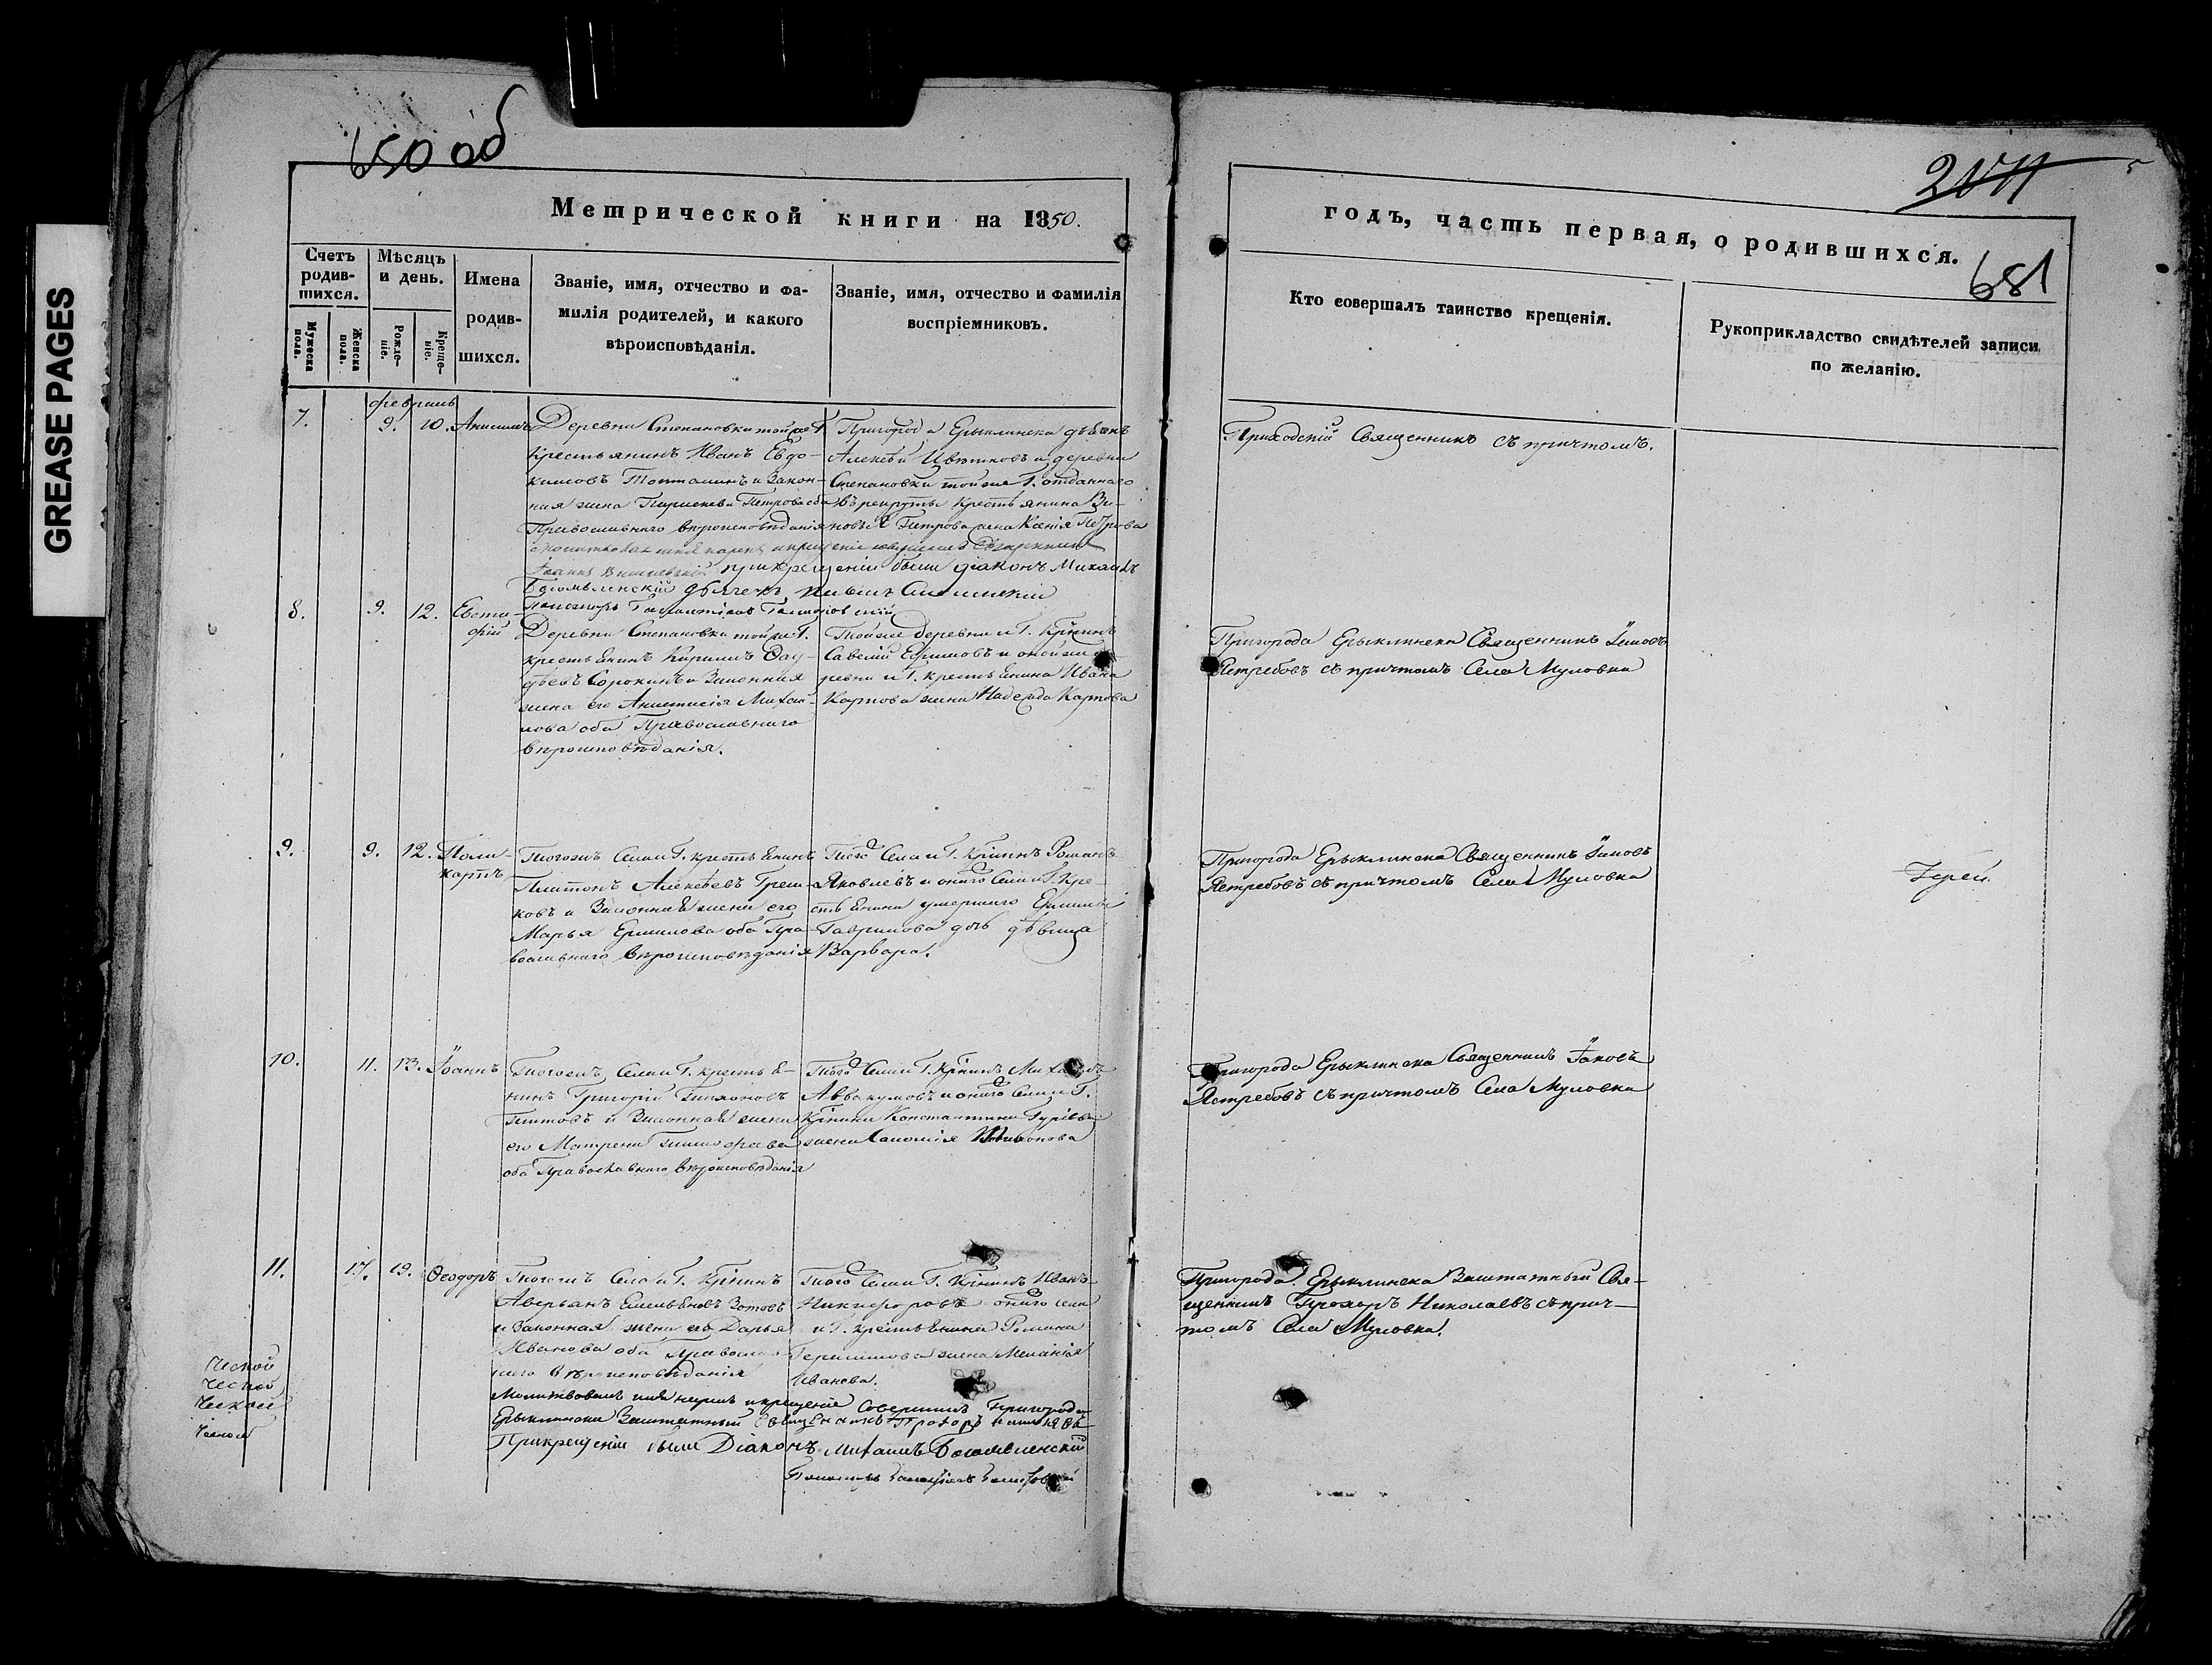 GREASE PAGES
650 об
Метрической книги на 1850.
Счетъ родив-шихся.
Мѣсяцъ и день.
Мужеска пола.
Женска пола.
Рожде-ніе.
Креще-ніе.
Имена
родив-
шихся.
Званіе, имя, отчество и фа-
милія родителей, и какого
вѣроисповѣданія.
Званіе, имя, отчество и фамилія
воспріемниковъ.
годъ, часть первая, о родившихся.
681
Кто совершалъ таинство крещенія.
Рукоприкладство свидѣтелей записи
по желанію.
февраль
7. 9. 10.
Деревни Степановки тойже Г.
крестьянинъ Иванъ Евдо-
кимовъ и Закон-
ная жена Петрова оба
Православнаго вѣроисповѣданія
Пригорода Ерыклинска дьячекъ
Алексѣй Цвѣтковъ и деревни
Степановки тойже Г. отданнаго
въ рекруты крестьянина
Петрова жена Ксенія Петрова
при крещеніи были діаконъ Михаилъ
Богоявленскій дьячекъ
Приходскій Священникъ съ причтомъ.
8. 9. 12. Евста-
фій
Деревни Степановки тойже Г.
крестьянинъ Кирилъ Фад-
дѣевъ Сорокинъ и Законная
жена его Анастасія Михай-
лова оба Православнаго
вѣроисповѣданія.
Тойже деревни и Г. крѣнинъ
Савелій Ефимовъ и онойже де-
ревни и Г. крестьянина Ивана
Карпова жена Надежда Карпова
Пригорода Ерыклинска Священникъ Іаковъ
Ястребовъ съ причтомъ Села Муловка
9. 9. 12. Поли-
карпъ
Тогожъ Села и Г. крестьянинъ
Платонъ Алексѣевъ Греш-
ковъ и Законная жена его
Марья Ермилова оба Пра-
вославнаго вѣроисповѣданія
Того Села и Г. крѣнинъ Романъ
Яковлевъ и онаго Села и Г. кре-
стьянина умершаго
Гаврилова дчь дѣвица
Варвара.
Пригорода Ерыклинска Священникъ Іаковъ
Ястребовъ съ причтомъ Села Муловка
Іерей
10. 11. 13. Іоаннъ
Тогожъ Села и Г. крестья-
нинъ Григорій
Титовъ и Законная жена
его Матрена Тимофеева
оба Православнаго вѣроисповѣданія
Того Села и Г. крѣнинъ Михаилъ
Аввакумовъ и онаго Села и Г.
крѣнина Константина Гурьева
жена
Пригорода Ерыклинска Священникъ Іаковъ
Ястребовъ съ причтомъ Села Муловка
11. 17. 19. Ѳеодоръ
Тогожъ Села и Г. крѣнинъ
Аверьянъ Емельяновъ Зотовъ
и Законная жена его Дарья
Иванова оба Православ-
наго вѣроисповѣданія
Того Села и Г. крѣнинъ Иванъ
Никифоровъ онаго села
и Г. крестьянина Романа
Герасимова жена Меланія
Иванова.
Молитвовалъ имя нарекъ и крещеніе Совершилъ Пригорода
Ерыклинска Заштатный Священникъ Прохоръ
При крещеніи были Діаконъ Михаилъ Богоявленскій
Пригорода Ерыклинска Заштатный Свя-
щенникъ Прохоръ Николаевъ съ прич-
томъ Села Муловка.